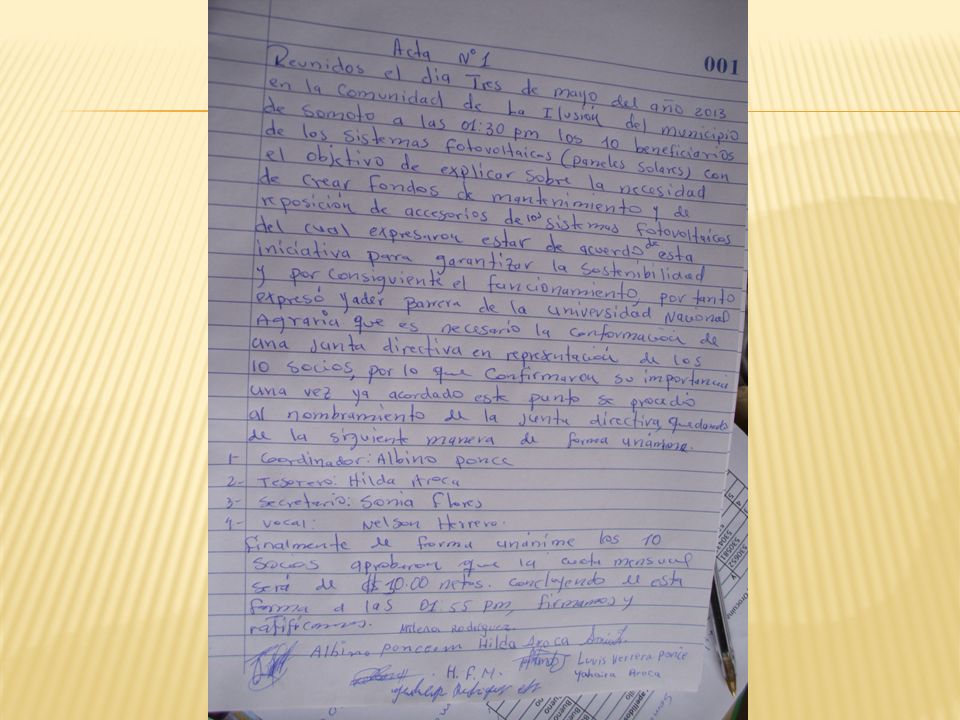 Acta N° 1
001
Reunidos el dia Tres de mayo del año 2013
en la Comunidad de La Ilusión del municipio
de Somoto a las 01:30 pm los 10 beneficiarios
de los sistemas fotovoltaicos (paneles solares) con
el objetivo de explicar sobre la necesidad
de crear fondos de mantenimiento y de
reposición de accesorios de los sistemas fotovoltaicos
del cual expresaron estar de acuerdo de esta
iniciativa para garantizar la sostenibilidad
y por consiguiente el funcionamiento, por tanto
expresó Yader Barrera de la universidad Nacional
Agraria que es necesario la conformación de
una junta directiva en representación de los
10 socios, por lo que confirmaron su importancia
una vez ya acordado este punto se procedio
al nombramiento de la junta directiva, quedando
de la siguiente manera de forma unánime.
1- Coordinador: Albino Ponce
2- Tesorero: Hilda Aroca
3- Secretario: Sonia Flores
4- Vocal: Nelson Herrera.
finalmente de forma unánime los 10
socios aprobaron que la cuota mensual
será de C$ 10.00 netos. Concluyendo de esta
forma a las 01:55 pm, firmamos y
ratificamos. Milena Rodríguez.
Albino Ponce Hilda Aroca
H. F. M. Luvis Herrera Ponce
Yahaira Aroca